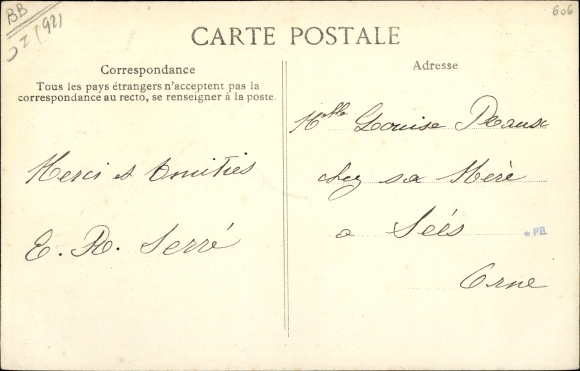 BB
(92)
606
CARTE POSTALE
Correspondance
Tous les pays étrangers n'acceptent pas la
correspondance au recto, se renseigner à la poste.
Merci et Amitiés
E. R. Serré
Adresse
Mlle Louise
chez sa Mère
a Séés
Orne